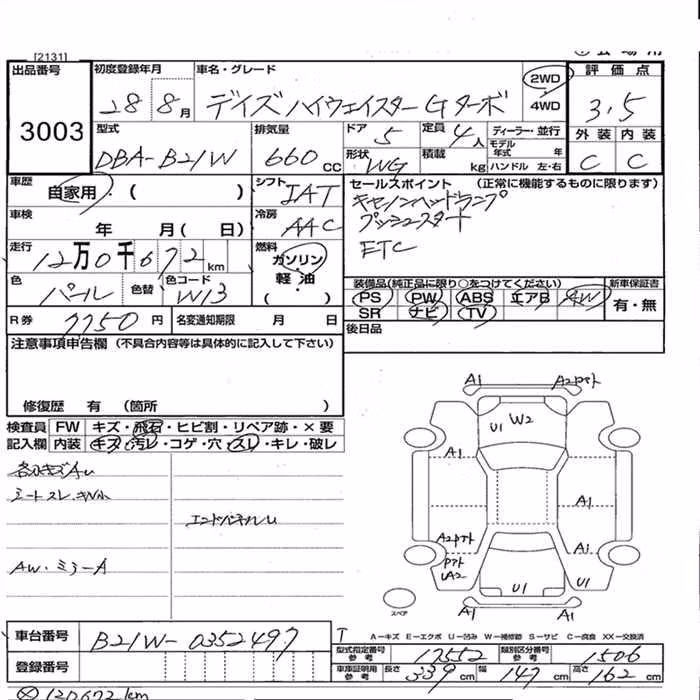 [2131]
出品番号 初度登録年月 車名・グレード 2WD 評価点
3003 28 8月 デイズ ハイウェイスター Gターボ 4WD 3.5
型式 排気量 ドア 定員 ディーラー・並行 外装 内装
DBA-B21W 660cc 5 4人 モデル年式 年 C C
形状 WG 積載 kg ハンドル 左・右
車歴 自家用・( ) シフト IAT セールスポイント (正常に機能するものに限ります)
キセノンヘッドランプ
車検 年 月( 日) 冷房 AAC プッシュスタート
走行 12万0千672km 燃料 ガソリン・軽油・( ) ETC
色 パール 色替 色コード W13 装備品(純正品に限り○をつけてください) 新車保証書
PS PW ABS エアB AW 有・無
SR ナビ TV
R券 7750円 名変通知期限 月 日 後日品
注意事項申告欄 (不具合内容等は具体的に記入して下さい)
修復歴 有 (箇所 )
検査員 FW キズ・飛石・ヒビ割・リペア跡・×要
記入欄 内装 キズ・汚レ・コゲ・穴・スレ・キレ・破レ
シートスレ・キズ小
エンドパネルU
AW・ミラーA
A1 A2
U1 W2
A1
A1
A2 A1
UA2 U1 U1
スペア
車台番号 B21W-0352497
登録番号
A-キズ E-エクボ U-凹み W-補修跡 S-サビ C-腐食 XX-交換済
型式指定番号 参考 17552 類別区分番号 参考 1506
車庫証明用 参考 長さ 339cm 幅 147cm 高さ 162cm
120672km